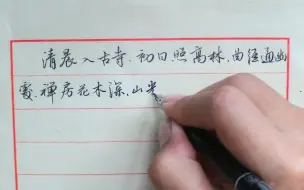 清晨入古寺.初日照高林.曲径通幽
處.禅房花木深.山光